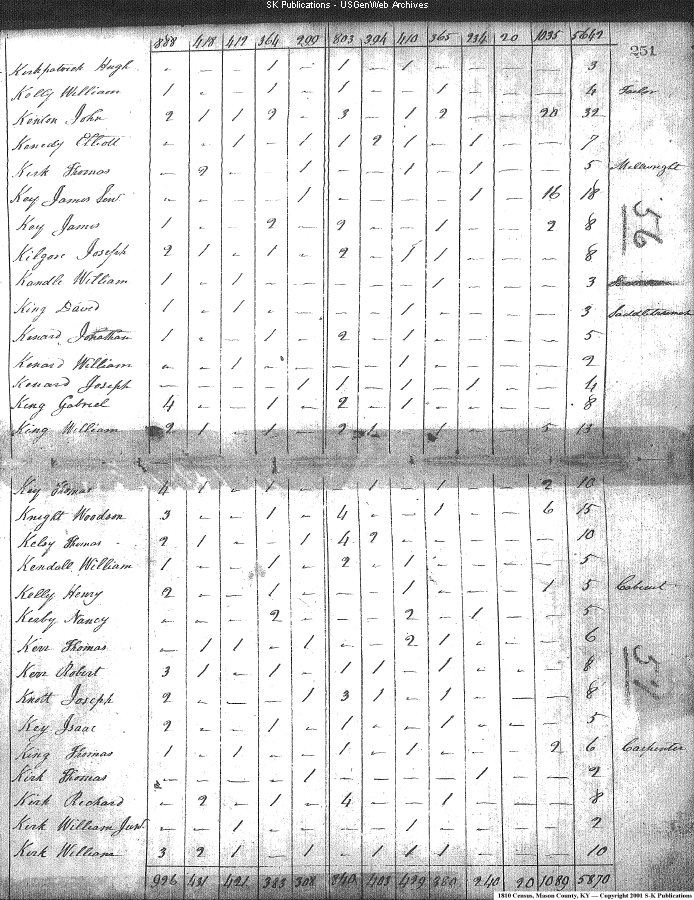 SK Publications - USGenWeb Archives
888 418 417 364 299 803 394 410 365 234 20 1035 5642
251
Kirkpatrick Hugh - - - 1 - 1 - 1 - - - - 3
Kelly William 1 - - 1 - 1 - - 1 - - - 4 Tailor
Kenton John 2 1 1 2 - 3 - 1 2 - - 20 32
Kenedy Elliott - - 1 - 1 1 2 1 - 1 - - 7
Kirk Thomas - 2 - - 1 - - 1 - 1 - - 5 Millwright
Key James Senr - - - - 1 - - - - 1 - 16 18
Key James 1 - - 2 - 2 - - 1 - - 2 8
56
Kilgore Joseph 2 1 - 1 - 2 - 1 1 - - - 8
Kandle William 1 - 1 - - - - - 1 - - - 3
King David 1 - 1 - - - - 1 - - - - 3
Kenard Jonathan 1 - - 1 - 2 - 1 - - - - 5
Kenard William - - 1 - - - - 1 - - - - 2
Kenard Joseph - - - - 1 1 - 1 - 1 - - 4
King Gabriel 4 - - 1 - 2 - 1 - - - - 8
King William 2 1 - 1 - 2 1 - 1 - - 5 13
Key Thomas 4 1 - 1 - - 1 - 1 - - 2 10
Knight Woodson 3 - - 1 - 4 - - 1 - - 6 15
Kelsy Thomas 2 1 - - 1 4 2 - - - - - 10
Kendall William 1 - - 1 - 2 - 1 - - - - 5
Kelly Henry 2 - - 1 - - - 1 - - - 1 5
Kerby Nancy - - - 2 - - - 2 - 1 - - 5
Kerr Thomas - 1 1 - 1 - - 2 1 - - - 6
Kerr Robert 3 1 - 1 - 1 1 - 1 - - - 8
57
Knott Joseph 2 - - - 1 3 1 - 1 - - - 8
Key Isaac 2 - - 1 - 1 - - 1 - - - 5
King Thomas 1 - 1 - - 1 - 1 - - - 2 6 Carpenter
Kirk Thomas - - - - 1 - - - - 1 - - 2
Kirk Richard - 2 - 1 - 4 - - 1 - - - 8
Kirk William Junr - - 1 - - - - 1 - - - - 2
Kirk William 3 2 1 - 1 - 1 1 1 - - - 10
926 431 421 383 308 840 403 429 380 240 20 1089 5870
1810 Census, Mason County, KY — Copyright 2001 S-K Publications